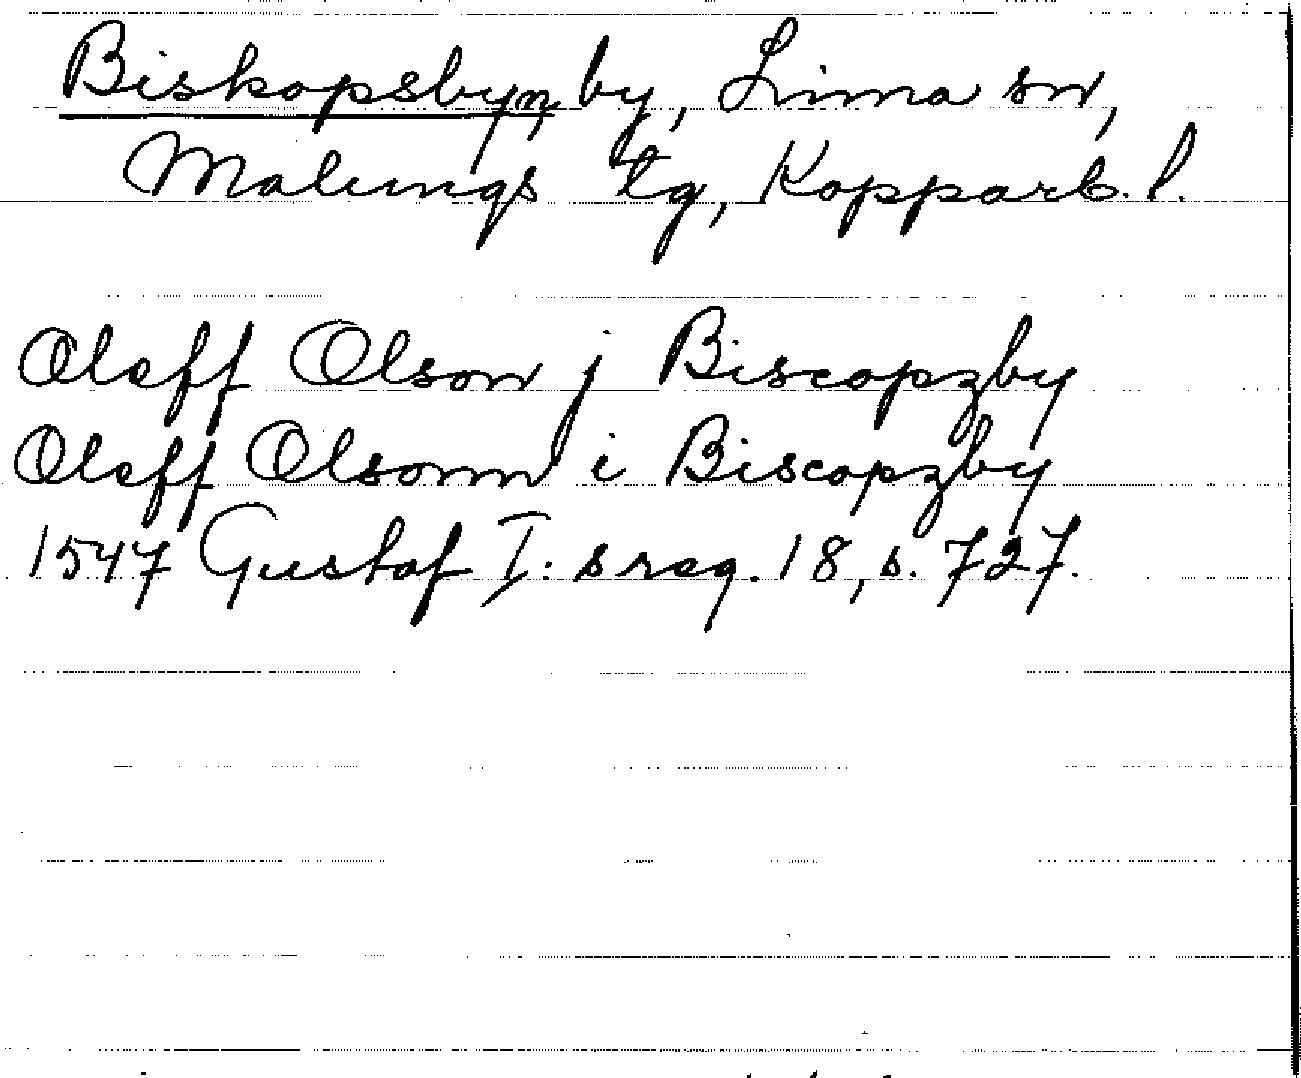 Biskopsbyn by, Lima sn,
Malungs tg, Kopparb. l.
Oleff Olson j Biscopzby
Oleff Olsonn i Biscopzby
1547 Gustaf I: s reg. 18, s. 727.